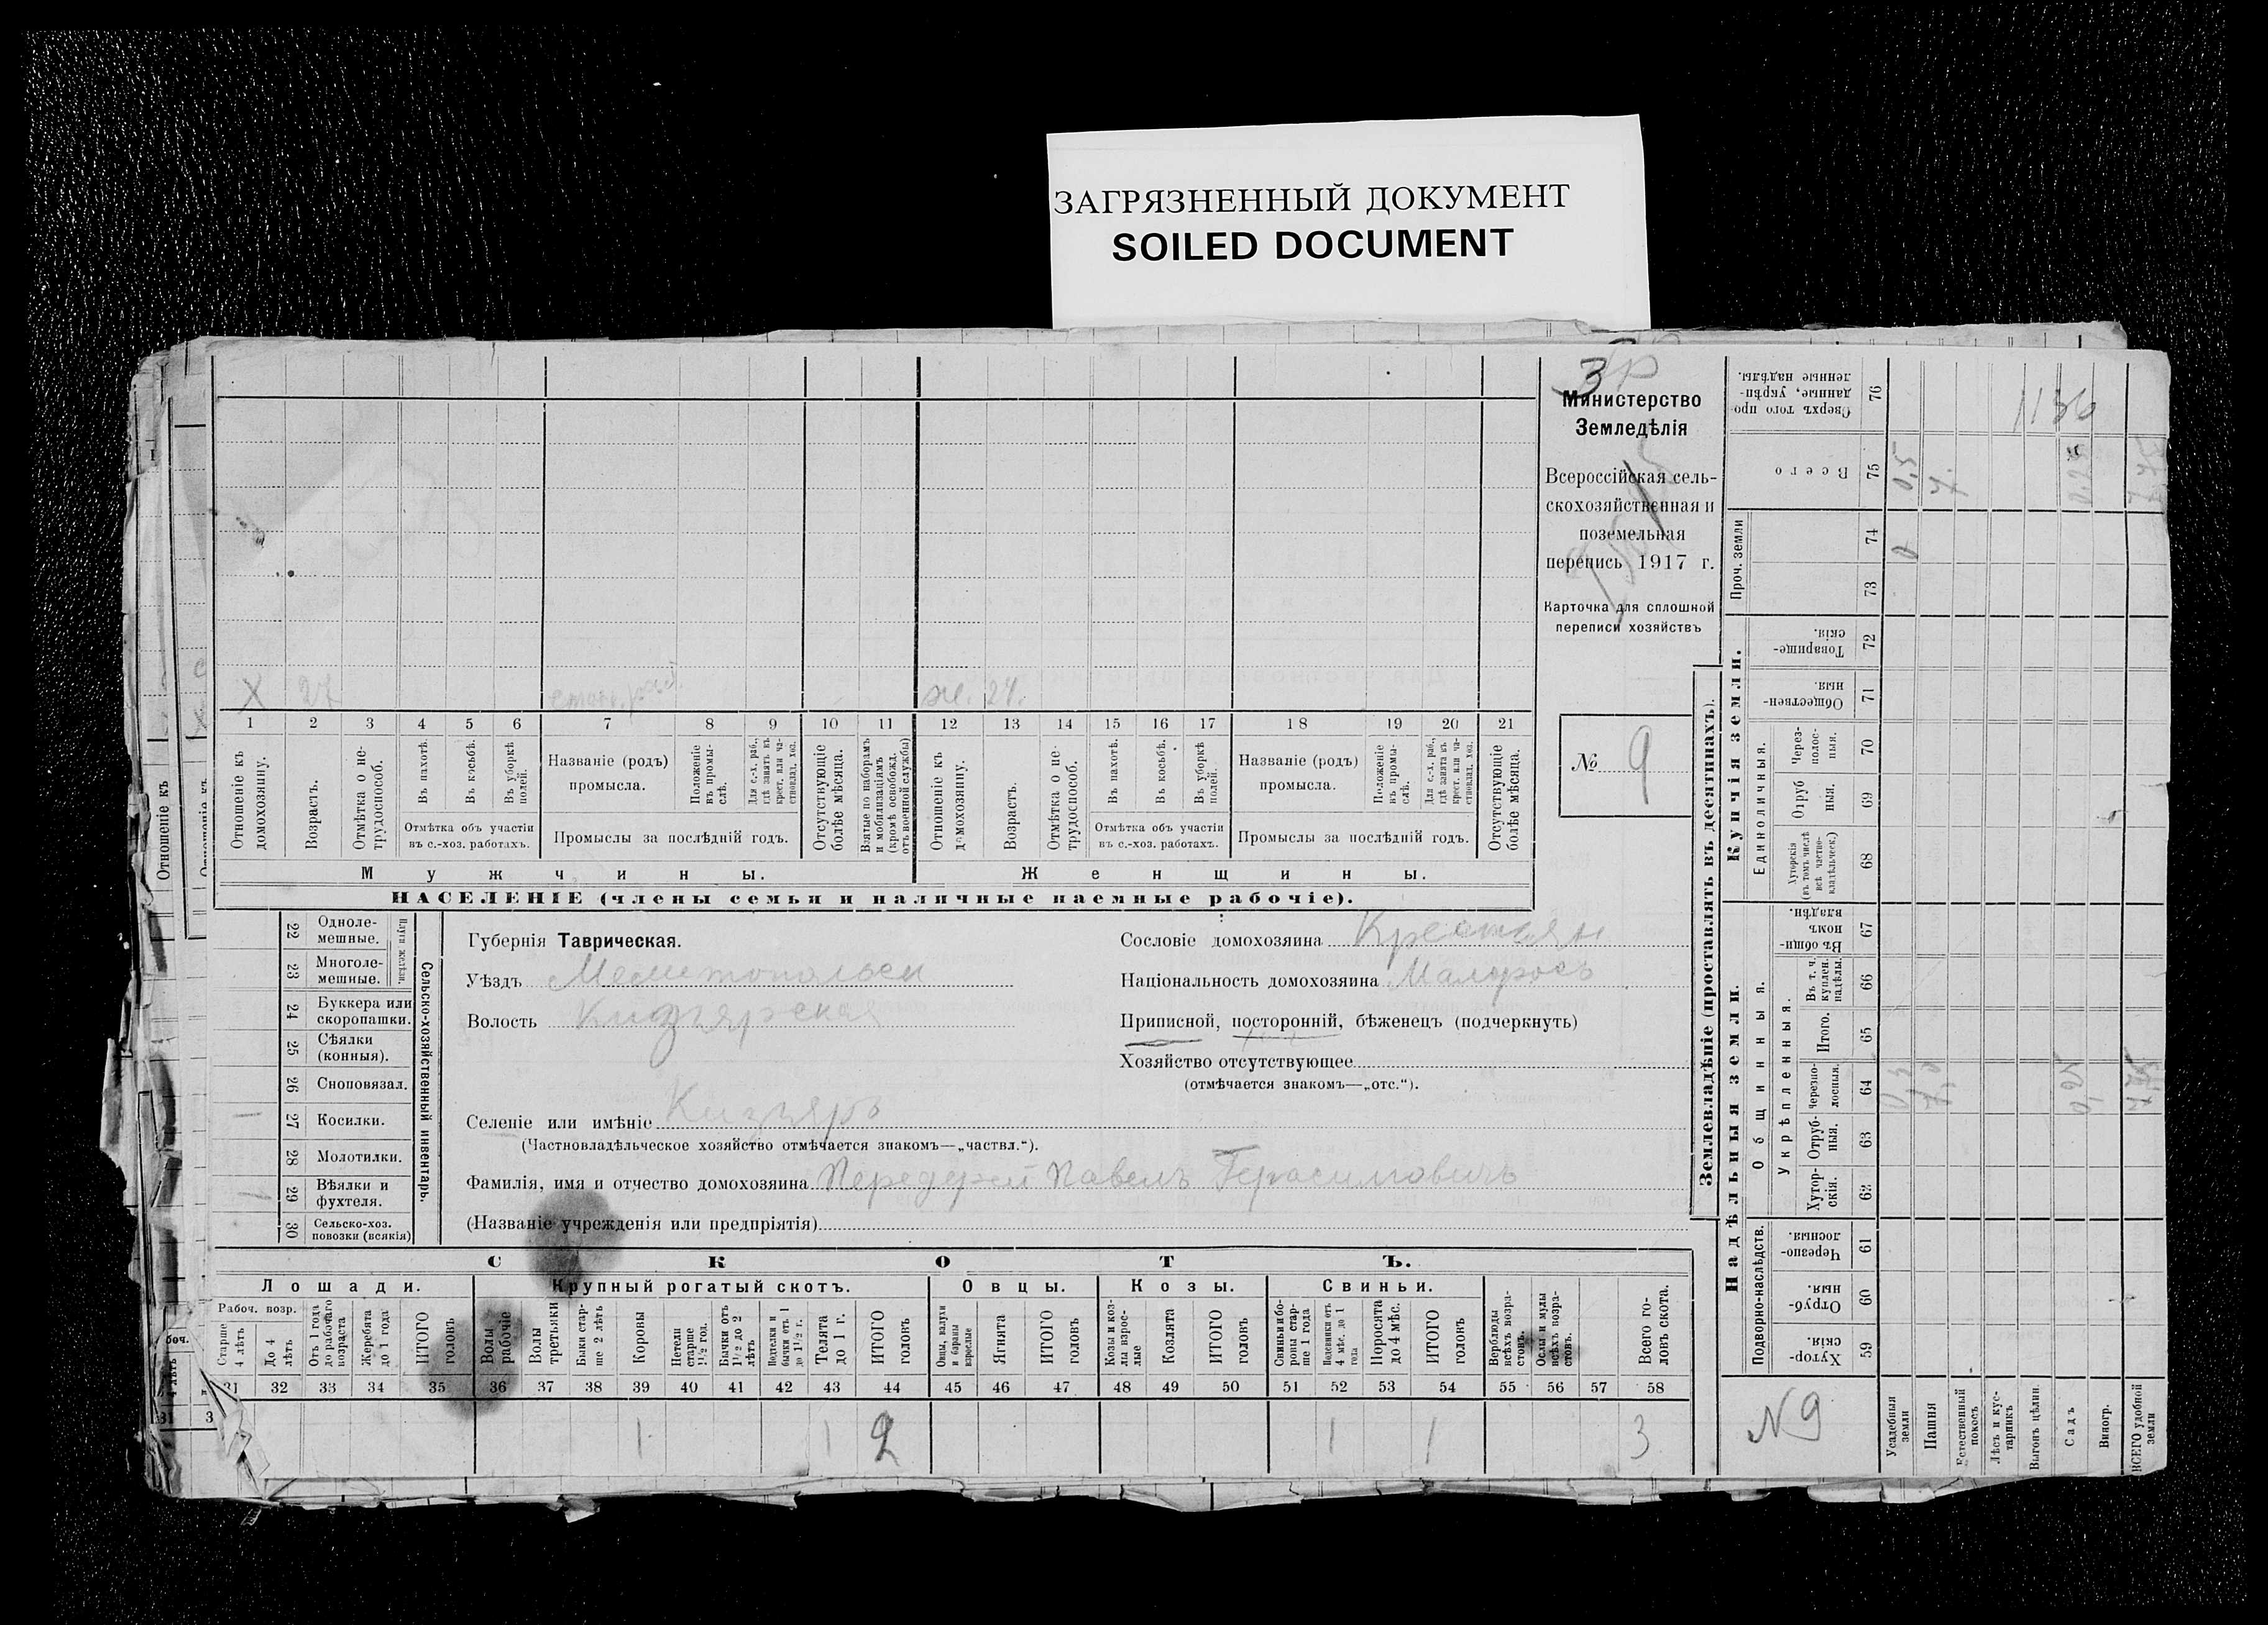 ЗАГРЯЗНЕННЫЙ ДОКУМЕНТ
SOILED DOCUMENT
3
Министерство
Земледѣлія
Всероссійская сель-
скохозяйственная и
поземельная
перепись 1917 г.
Карточка для сплошной
переписи хозяйствъ
№ 9
X 27
ж. 24.
1 2 3 4 5 6 7 8 9 10 11 12 13 14 15 16 17 18 19 20 21
Отношеніе къ домохозяину.
Возрастъ.
Отмѣтка о не-трудоспособ.
Въ пахотѣ.
Въ косьбѣ.
Въ уборкѣ полей.
Отмѣтка объ участіи
въ с.-хоз. работахъ.
Названіе (родъ)
промысла.
Положеніе въ промы-слѣ.
Для с.-х. раб., гдѣ занятъ въ крест. или ча-стновлад. хоз.
Промыслы за послѣдній годъ.
Отсутствующіе болѣе мѣсяца.
Взятые по наборамъ и мобилизаціямъ (кромѣ освобожд. отъ военной службы)
Отношеніе къ домохозяину.
Возрастъ.
Отмѣтка о не-трудоспособ.
Въ пахотѣ.
Въ косьбѣ.
Въ уборкѣ полей.
Отмѣтка объ участіи
въ с.-хоз. работахъ.
Названіе (родъ)
промысла.
Положеніе въ промы-слѣ.
Для с.-х. раб., гдѣ занята въ крест. или час-тновлад. хоз.
Промыслы за послѣдній годъ.
Отсутствующіе болѣе мѣсяца.
Мужчины.
Женщины.
НАСЕЛЕНІЕ (члены семьи и наличные наемные рабочіе).
Сельско-хозяйственный инвентарь.
Плуги желѣзн.
22 Одноле-мешные.
23 Многоле-мешные.
24 Буккера или скоропашки.
25 Сѣялки (конныя).
26 Сноповязал.
1 27 Косилки.
28 Молотилки.
1 29 Вѣялки и фухтеля.
30 Сельско-хоз. повозки (всякія)
Губернія Таврическая.
Уѣздъ Мелитопольск
Волость Кизіярская
Селеніе или имѣніе Кизіяръ
(Частновладѣльческое хозяйство отмѣчается знакомъ—„частвл.“).
Фамилія, имя и отчество домохозяина Передерей Павелъ Герасимовичъ
(Названіе учрежденія или предпріятія)
Сословіе домохозяина Крестьян
Національность домохозяина Малоросъ
Приписной, посторонній, бѣженецъ (подчеркнуть)
Хозяйство отсутствующее
(отмѣчается знакомъ—„отс.“).
СКОТЪ.
Лошади.
Крупный рогатый скотъ.
Овцы.
Козы.
Свиньи.
Рабоч. возр.
Старше 4 лѣтъ
До 4 лѣтъ
Отъ 1 года до рабочаго возраста
Жеребята до 1 года
ИТОГО головъ
Волы рабочіе
Волы третьяки
Быки стар-ше 2 лѣтъ
Коровы
Нетели старше 1½ год.
Бычки отъ 1½ до 2 лѣтъ
Подтелки и бычки отъ 1 до 1½ г.
Телята до 1 г.
ИТОГО головъ
Овцы, валухи и бараны взрослые
Ягнята
ИТОГО головъ
Козы и коз-лы взрос-лые
Козлята
ИТОГО головъ
Свиньи и бо-ровы стар-ше 1 года
Подсвинки отъ 4 мѣс. до 1 года
Поросята до 4 мѣс.
ИТОГО головъ
Верблюды всѣхъ возра-стовъ.
Ослы и мулы всѣхъ возра-стовъ.
Всего го-ловъ скота.
31 32 33 34 35 36 37 38 39 40 41 42 43 44 45 46 47 48 49 50 51 52 53 54 55 56 57 58
1 1 2 1 1 3
Землевладѣніе (проставлять въ десятинахъ).
Надѣльныя земли.
Купчія земли.
Проч. земли
Подворно-наслѣдств.
Общинныя.
Укрѣпленныя.
Единоличныя.
Хутор-скія. 59
Отруб-ныя. 60
Черезпо-лосныя. 61
Хутор-скія. 62
Отруб-ныя. 63
Черезпо-лосныя. 64
Итого. 65
Въ т. ч. куплен. надѣлы. 66
Въ общи-номъ владѣн. 67
Хуторскія (въ томъ числѣ всѣ частно-владѣльческ.) 68
Отруб ныя. 69
Через-полос-ныя. 70
Обществен-ныя. 71
Товарище-скія. 72
73
74
Всего 75
Сверхъ того про данные, укрѣп-ленные надѣлы. 76
1136
0,5
7.
№ 9
Усадебныя земли
Пашня
Естественный покосъ
Лѣсъ и кус-тарникъ
Выгонъ цѣлин.
Садъ
Виногр.
ВСЕГО удобной земли